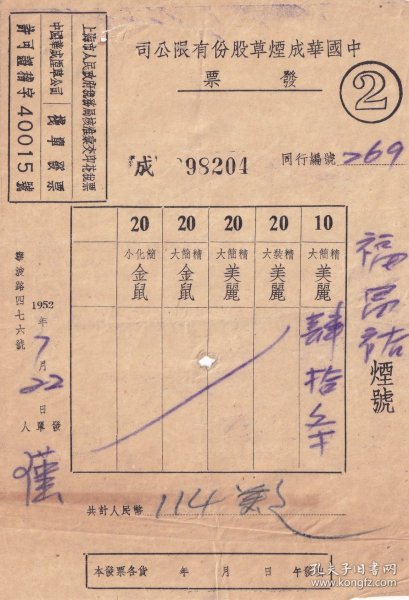 中國華成煙草股份有限公司
發票
②
上海市人民政府稅務局核准彙交印花稅票
中國華成煙草公司
機車發票
許可證稽字40015號
成 98204
同行編號 269
20 20 20 20 10
小化簡 大簡精 大簡精 大裝精 大簡精
金鼠 金鼠 美麗 美麗 美麗
肆拾
福昌祜煙號
寧波路四七六號
1952年7月22日
發單人
共計人民幣 114萬
本發票各貨 年 月 日 午發
孔夫子旧书网
www.kongfz.com